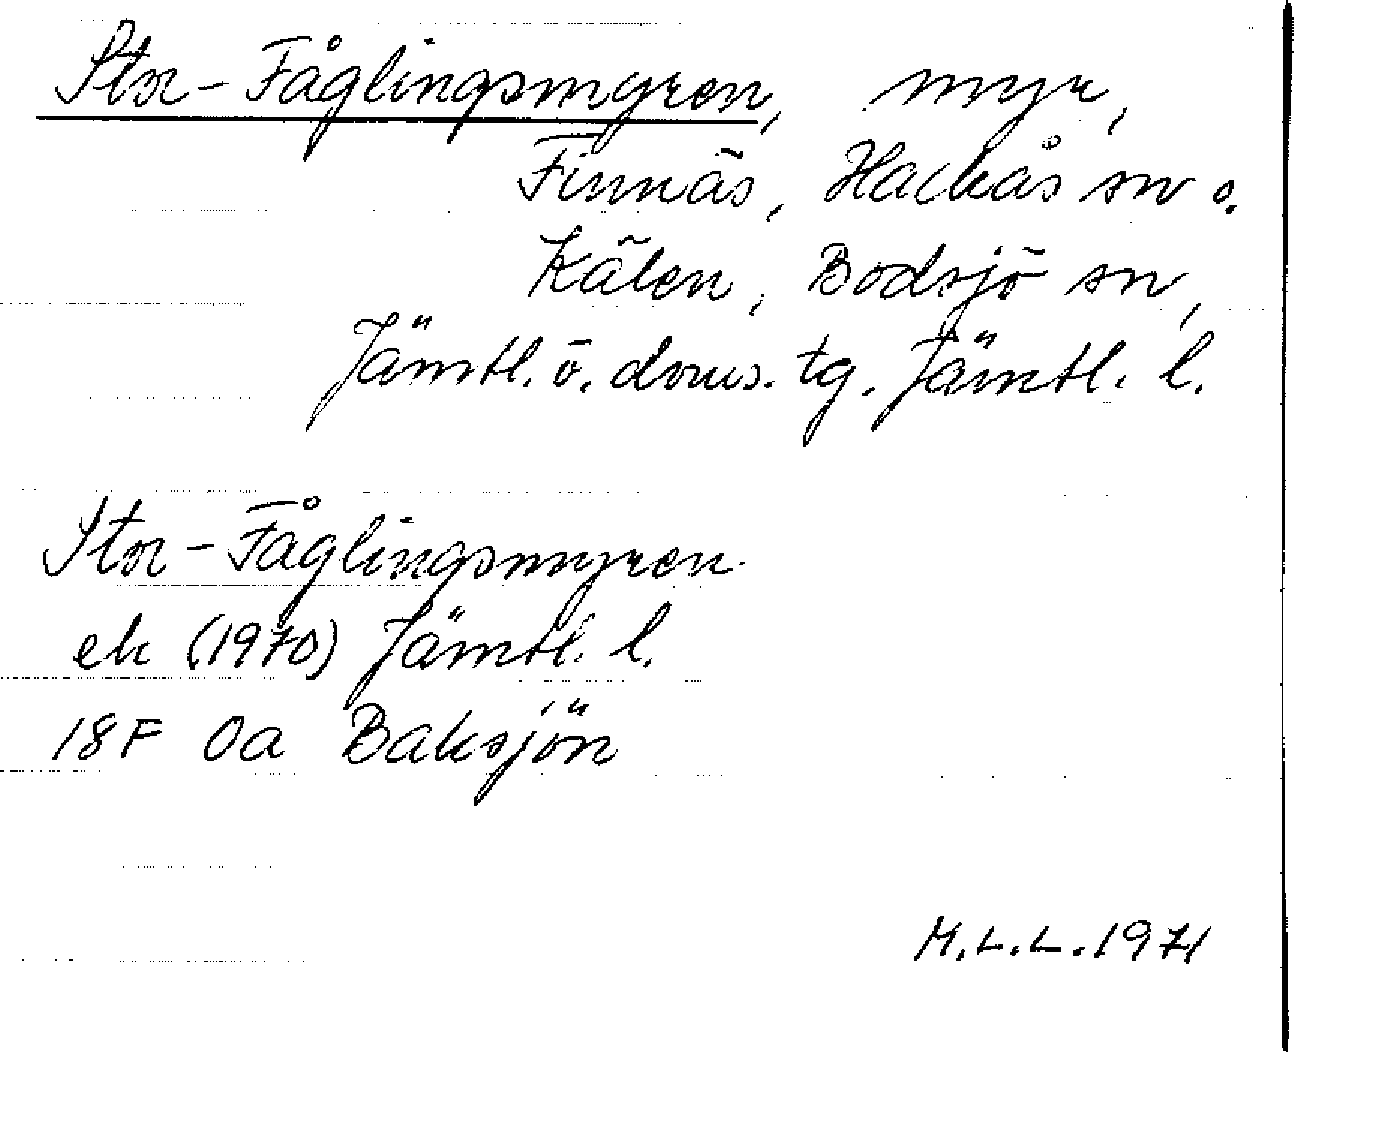 Stor-Fåglingsmyren, myr,
Finnäs, Hackås sn o.
Kälen, Bodsjö sn,
Jämtl. ö. doms. tg. Jämtl. l.
Stor-Fåglingsmyren
ek (1970) Jämtl. l.
18F 0a Baksjön
M.L.L. 1971